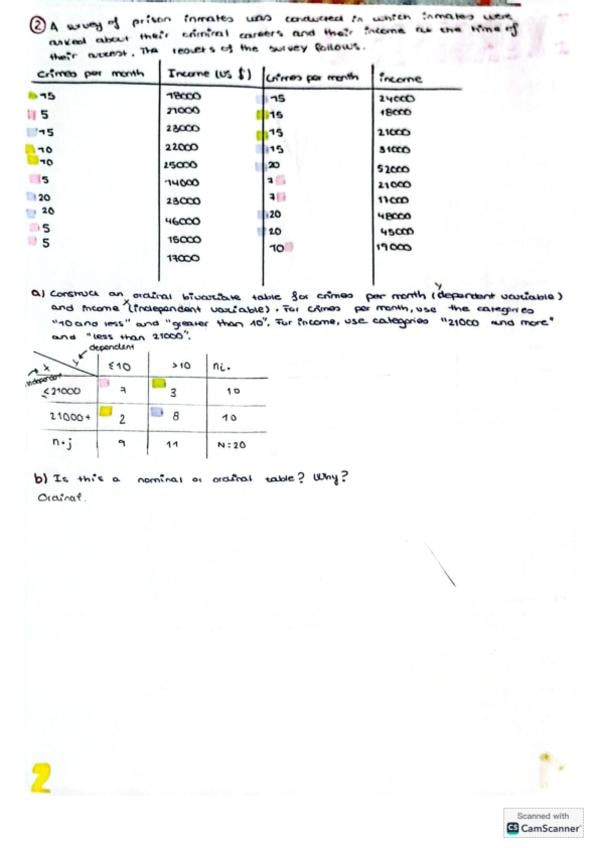 2 A survey of prison inmates was conducted in which inmates were
asked about their criminal careers and their income at the time of
their arrest. The results of the survey follows.
Crimes per month Income (US $) Crimes per month income
15 18000 15 24000
5 21000 15 18000
15 23000 15 21000
10 22000 15 31000
10 25000 20 52000
5 14000 7 21000
20 23000 7 17000
20 46000 20 48000
5 15000 20 45000
5 17000 10 19000
a) Construct an ordinal bivariate table for crimes per month (dependent variable)
y
and income (independent variable). For crimes per month, use the categories
x
"10 and less" and "greater than 10". For income, use categories "21000 and more"
and "less than 21000".
dependent
x y ≤10 >10 ni.
independent
≤21000 7 3 10
21000+ 2 8 10
n.j 9 11 N=20
b) Is this a nominal or ordinal table? Why?
Ordinal.
2
Scanned with
CS CamScanner